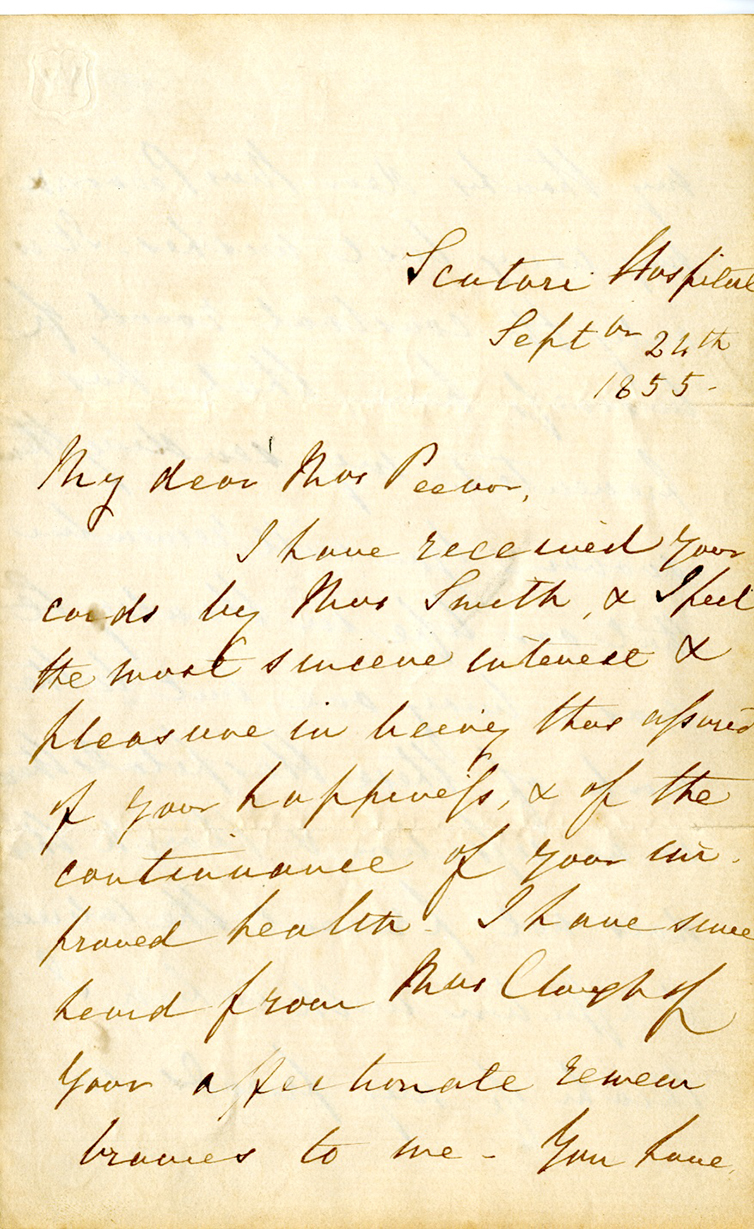 Scutari Hospital
Septbr 24th
1855-
My dear Mrs Peevor,
I have received your
cards by Mrs Smith, & I feel
the most sincere interest &
pleasure in being thus assured
of your happiness, & of the
continuance of your im-
proved health - I have since
heard from Mrs Clough of
your affectionate remem
brances to me - You have